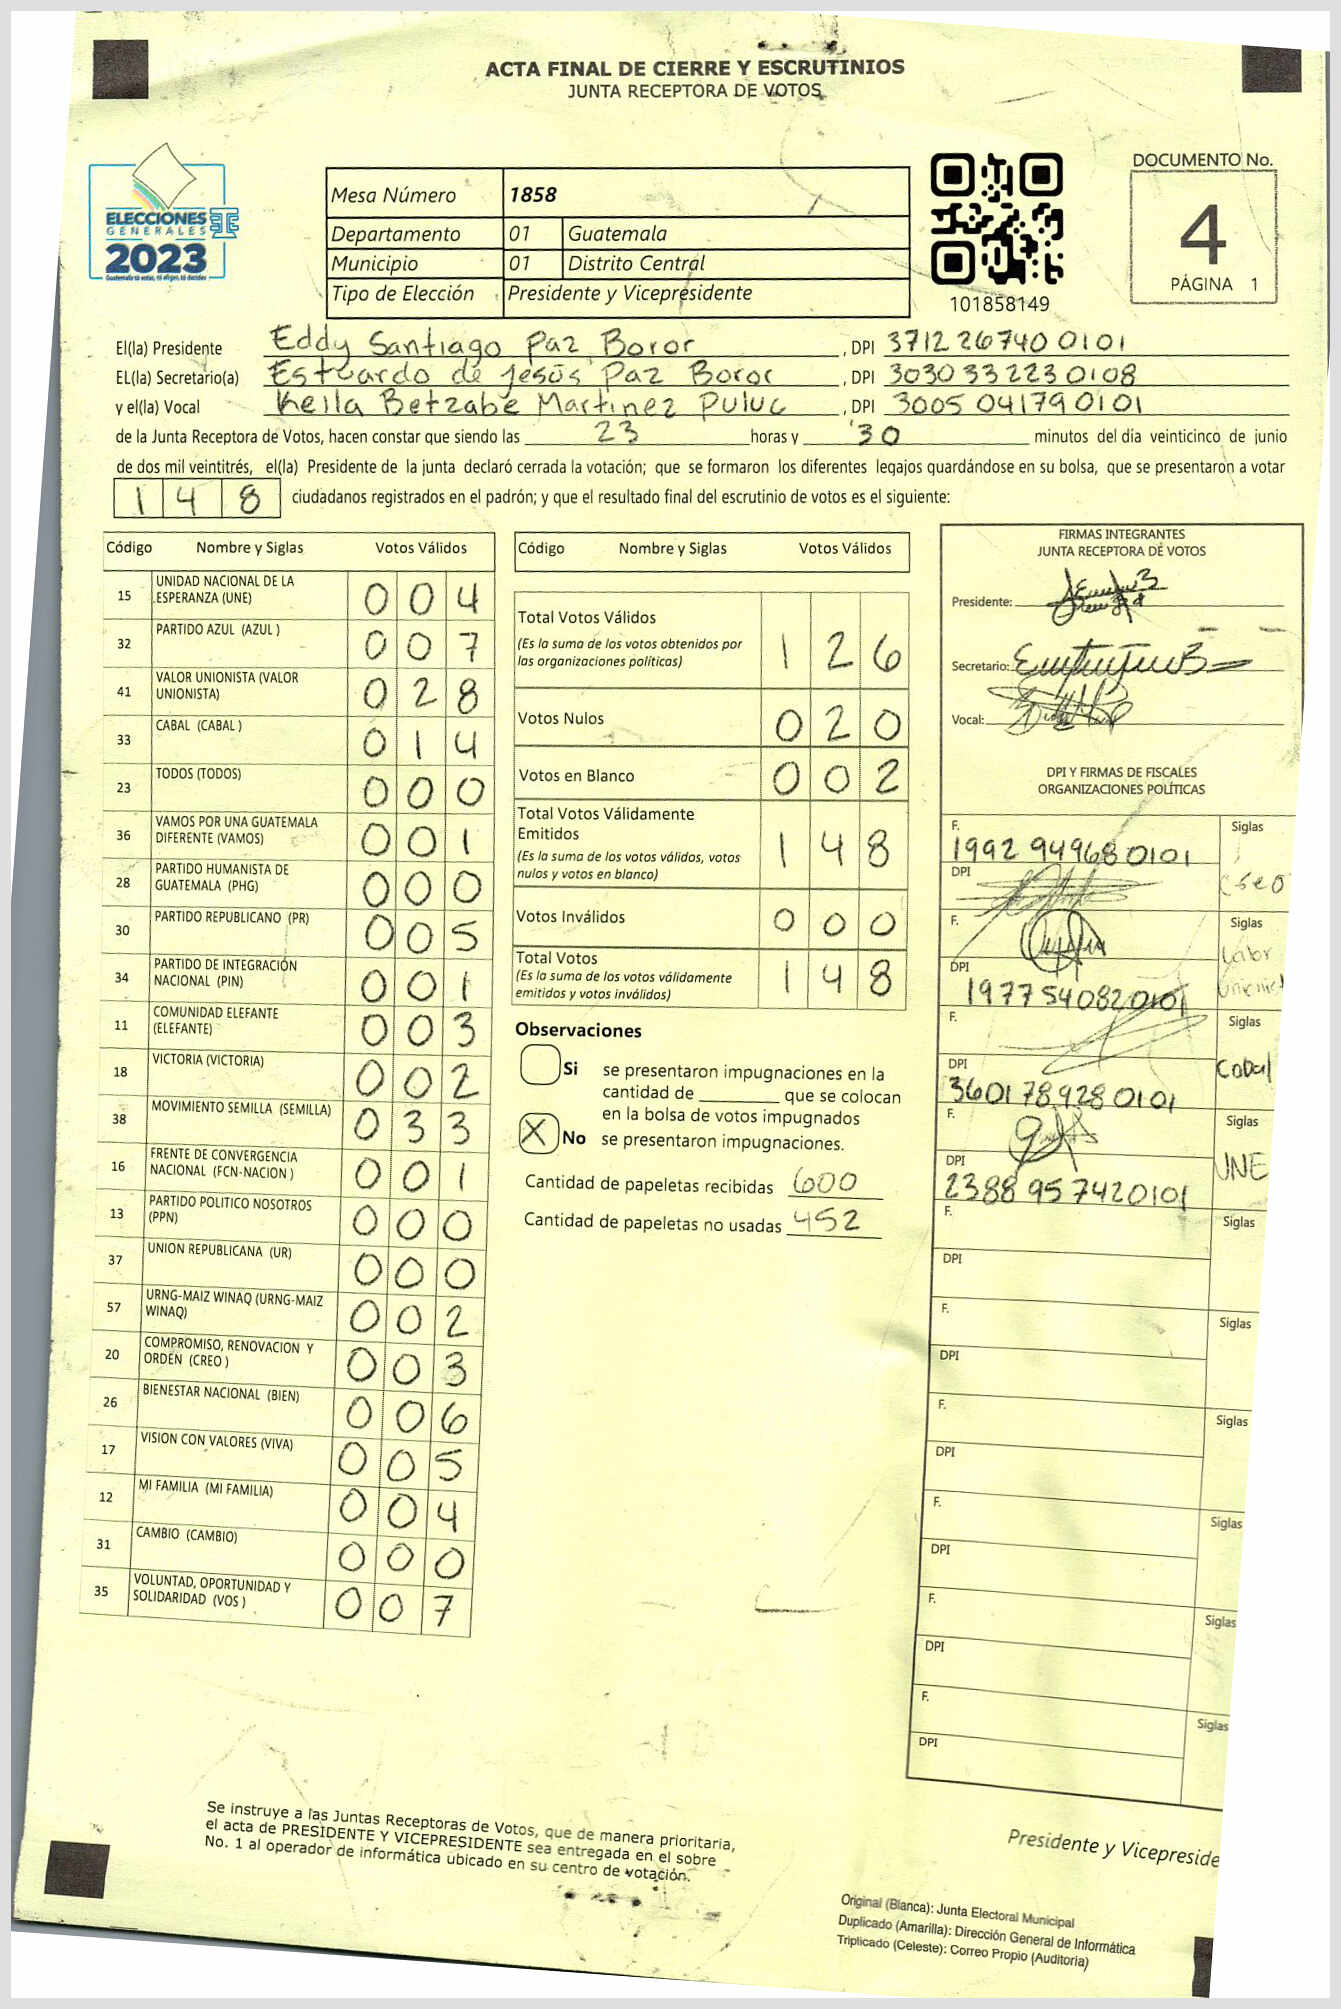 ACTA FINAL DE CIERRE Y ESCRUTINIOS
JUNTA RECEPTORA DE VOTOS
ELECCIONES
GENERALES
2023
Guatemala tú votas, tú eliges, tú decides
Mesa Número 1858
Departamento 01 Guatemala
Municipio 01 Distrito Central
Tipo de Elección Presidente y Vicepresidente
101858149
DOCUMENTO No.
4
PÁGINA 1
El(la) Presidente Eddy Santiago Paz Boror, DPI 3712 26740 0101
EL(la) Secretario(a) Estuardo de Jesús Paz Boror, DPI 3030 33223 0108
y el(la) Vocal Keila Betzabe Martinez Puluc, DPI 3005 04179 0101
de la Junta Receptora de Votos, hacen constar que siendo las 23 horas y 30 minutos del día veinticinco de junio
de dos mil veintitrés, el(la) Presidente de la junta declaró cerrada la votación; que se formaron los diferentes legajos guardándose en su bolsa, que se presentaron a votar
148 ciudadanos registrados en el padrón; y que el resultado final del escrutinio de votos es el siguiente:
Código Nombre y Siglas Votos Válidos
15 UNIDAD NACIONAL DE LA ESPERANZA (UNE) 004
32 PARTIDO AZUL (AZUL ) 007
41 VALOR UNIONISTA (VALOR UNIONISTA) 028
33 CABAL (CABAL ) 014
23 TODOS (TODOS) 000
36 VAMOS POR UNA GUATEMALA DIFERENTE (VAMOS) 001
28 PARTIDO HUMANISTA DE GUATEMALA (PHG) 000
30 PARTIDO REPUBLICANO (PR) 005
34 PARTIDO DE INTEGRACIÓN NACIONAL (PIN) 001
11 COMUNIDAD ELEFANTE (ELEFANTE) 003
18 VICTORIA (VICTORIA) 002
38 MOVIMIENTO SEMILLA (SEMILLA) 033
16 FRENTE DE CONVERGENCIA NACIONAL (FCN-NACION ) 001
13 PARTIDO POLITICO NOSOTROS (PPN) 000
37 UNION REPUBLICANA (UR) 000
57 URNG-MAIZ WINAQ (URNG-MAIZ WINAQ) 002
20 COMPROMISO, RENOVACION Y ORDEN (CREO ) 003
26 BIENESTAR NACIONAL (BIEN) 006
17 VISION CON VALORES (VIVA) 005
12 MI FAMILIA (MI FAMILIA) 004
31 CAMBIO (CAMBIO) 000
35 VOLUNTAD, OPORTUNIDAD Y SOLIDARIDAD (VOS ) 007
Código Nombre y Siglas Votos Válidos
Total Votos Válidos 126
(Es la suma de los votos obtenidos por las organizaciones políticas)
Votos Nulos 020
Votos en Blanco 002
Total Votos Válidamente Emitidos 148
(Es la suma de los votos válidos, votos nulos y votos en blanco)
Votos Inválidos 000
Total Votos 148
(Es la suma de los votos válidamente emitidos y votos inválidos)
Observaciones
Si se presentaron impugnaciones en la
cantidad de ________ que se colocan
en la bolsa de votos impugnados
X No se presentaron impugnaciones.
Cantidad de papeletas recibidas 600
Cantidad de papeletas no usadas 452
FIRMAS INTEGRANTES
JUNTA RECEPTORA DE VOTOS
Presidente:
Secretario:
Vocal:
DPI Y FIRMAS DE FISCALES
ORGANIZACIONES POLÍTICAS
F. Siglas
1992 94968 0101
DPI
F. Siglas
Valor
DPI
1977 54082 0101
F. Siglas
Cabal
DPI
3601 78928 0101
F. Siglas
UNE
DPI
2388 95742 0101
F. Siglas
DPI
F. Siglas
DPI
F. Siglas
DPI
F. Siglas
DPI
F. Siglas
DPI
F. Siglas
DPI
Se instruye a las Juntas Receptoras de Votos, que de manera prioritaria,
el acta de PRESIDENTE Y VICEPRESIDENTE sea entregada en el sobre
No. 1 al operador de informática ubicado en su centro de votación.
Presidente y Vicepreside
Original (Blanca): Junta Electoral Municipal
Duplicado (Amarilla): Dirección General de Informática
Triplicado (Celeste): Correo Propio (Auditoría)